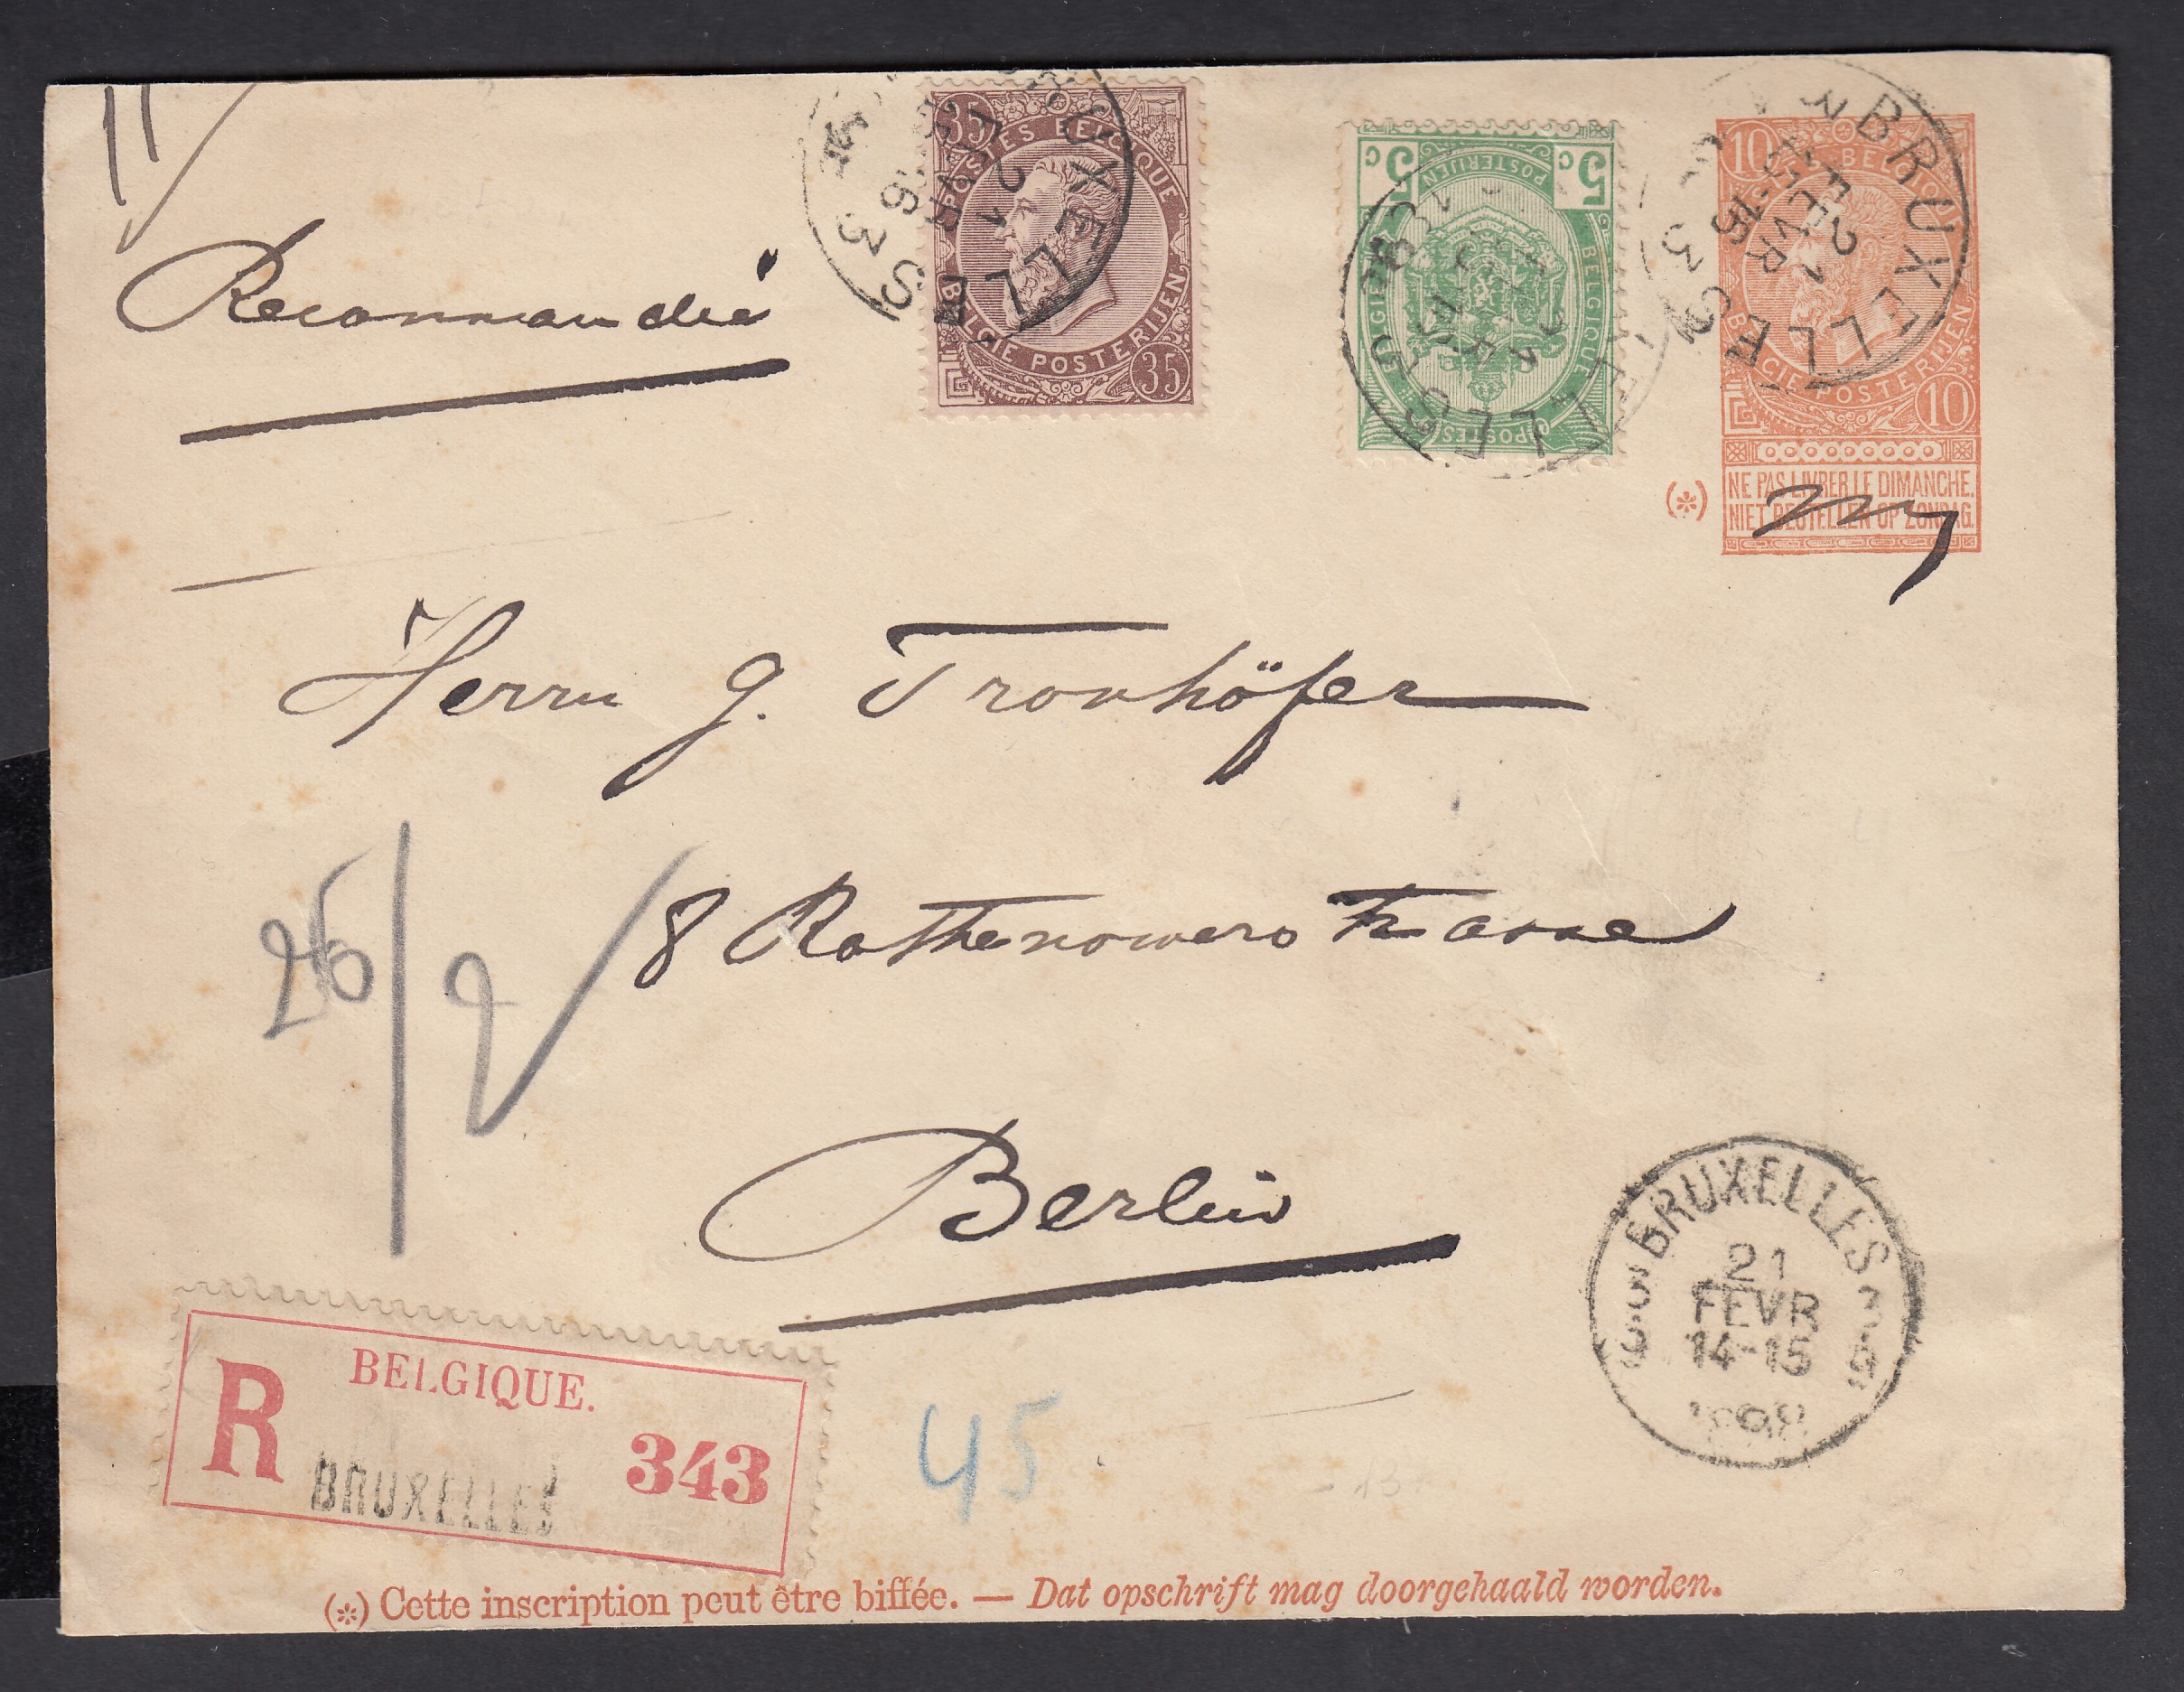 Recommandée
35
POSTES BELGIQUE
BELGIE POSTERIJEN
35
BRUXELLES
21
FEVR
3 S
5 c
5 c
POSTERIJEN
BELGIQUE
BELGIE
POSTES
10
BELGIQUE
BELGIE POSTERIJEN
10
BRUXELLES
21
FEVR
15-16
3
(*)
NE PAS LIVRER LE DIMANCHE.
NIET BESTELLEN OP ZONDAG.
Herrn G. Tronhöfer
8 Rathenowerstrasse
26/2
Berlin
BRUXELLES
21
FEVR
14-15
R
BELGIQUE.
BRUXELLES
343
45
(*) Cette inscription peut être biffée. — Dat opschrift mag doorgehaald worden.